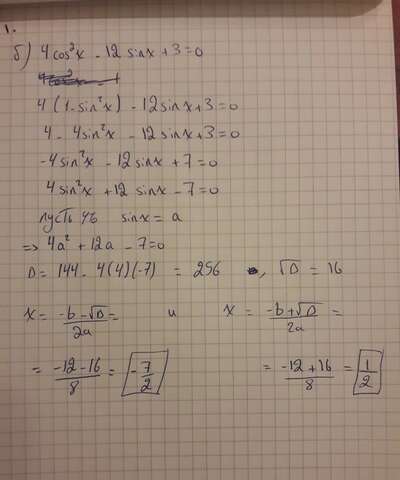 1.
б) 4cos²x - 12 sinx + 3 = 0
4(1 - sin²x) - 12sinx + 3 = 0
4 - 4sin²x - 12sinx + 3 = 0
-4sin²x - 12sinx + 7 = 0
4sin²x + 12 sinx - 7 = 0
пусть sinx = a
=> 4a² + 12a - 7 = 0
D = 144 - 4(4)(-7) = 256 , √D = 16
x = -b - √D / 2a = и x = -b + √D / 2a =
= -12 - 16 / 8 = -7/2 = -12 + 16 / 8 = 1/2